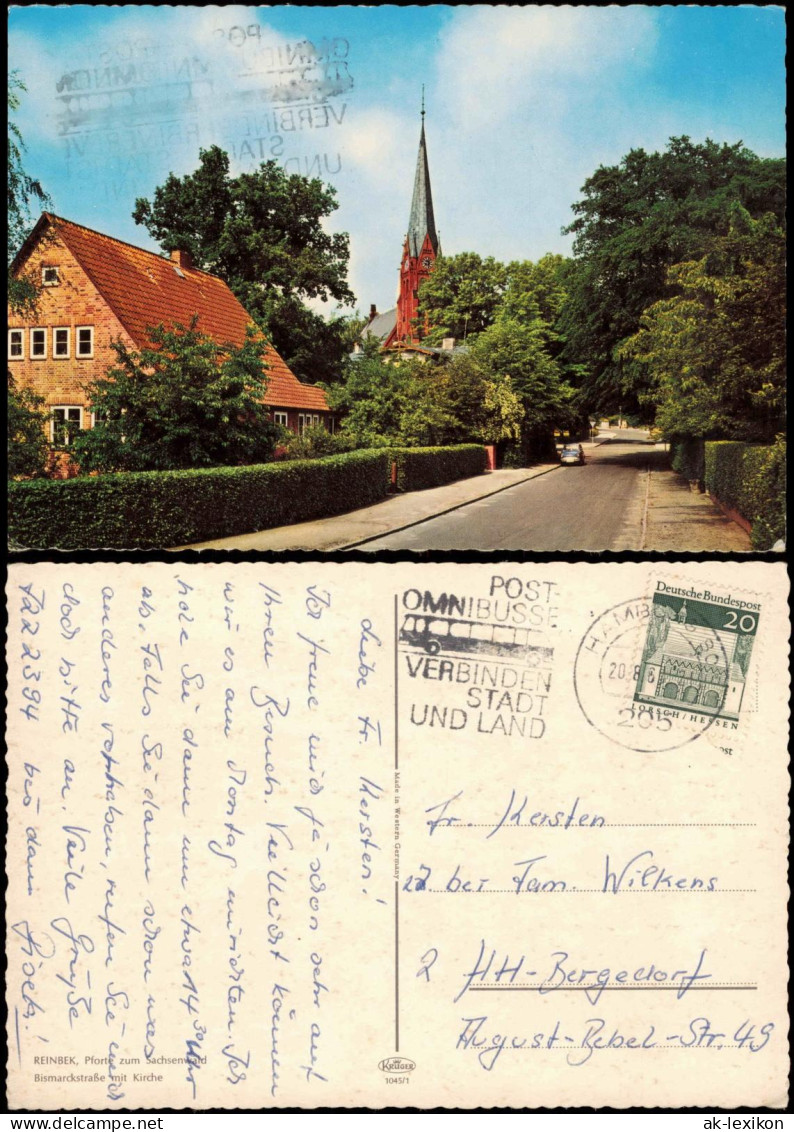 POST-
OMNIBUSSE
VERBINDEN
STADT
UND LAND
HAMBURG 80
20.8.6
205
Deutsche Bundespost
20
LORSCH/HESSEN
Liebe Fr. Kersten!
Ich freue mich ja schon sehr auf
Ihren Besuch. Vielleicht können
wir es am Montag einrichten. Ich
hole Sie dann um etwa 14 30 Uhr
ab. Falls Sie dann schon was
anderes vorhaben, rufen Sie mich
doch bitte an. Viele Grüße
722 2394 bis dann
Made in Western Germany
Fr. Kersten
zz. bei Fam. Wilkens
2 HH-Bergedorf
August-Bebel-Str. 49
REINBEK, Pforte zum Sachsenwald
Bismarckstraße mit Kirche
KRÜGER
1045/1
ak-ansichtskarten.de
ak-lexikon.com